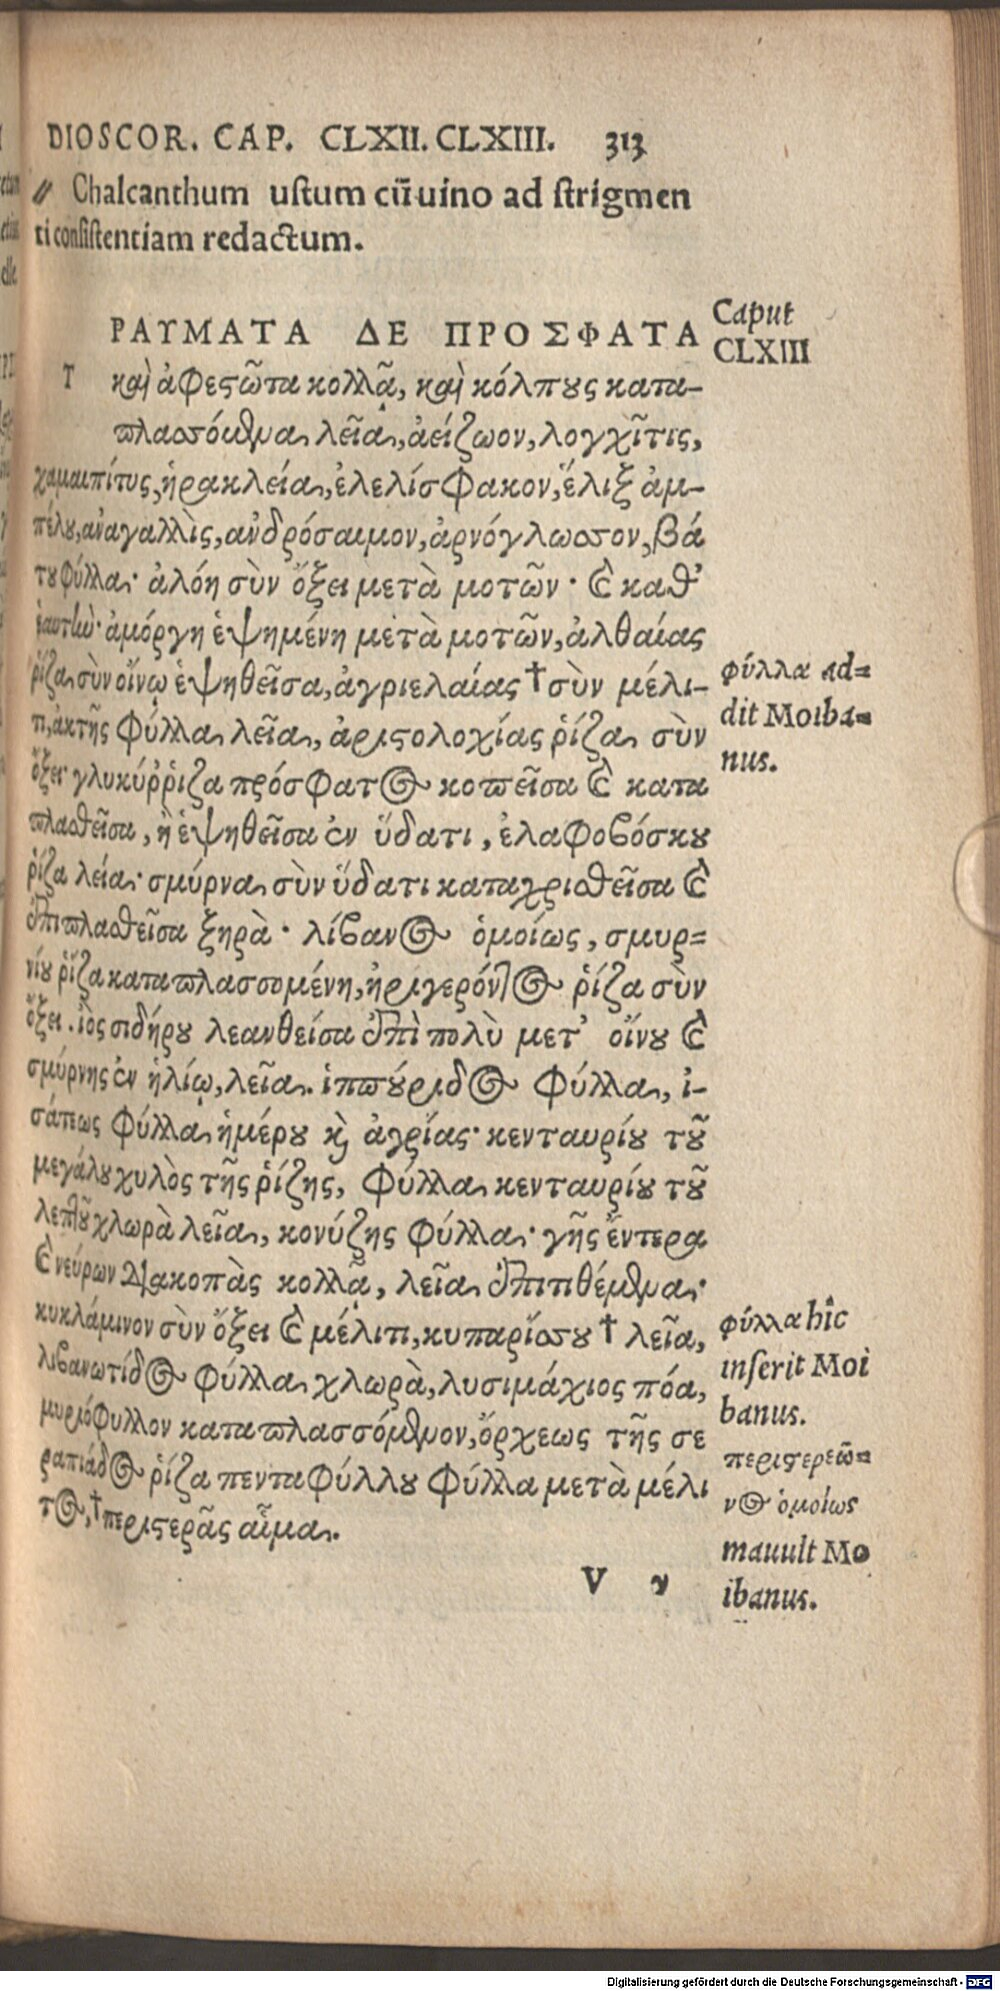 DIOSCOR. CAP. CLXII. CLXIII. 313
〃 Chalcanthum ustum cū uino ad strigmen
ti consistentiam redactum.
ΡΑΥΜΑΤΑ ΔΕ ΠΡΟΣΦΑΤΑ
Caput
CLXIII
Τ καὶ ἀφεστῶτα κολλᾷ, καὶ κόλπους κατα-
πλασσόμενα λεῖα, ἀείζωον, λογχῖτις,
χαμαιπίτυς, ἡρακλεία, ἐλελίσφακον, ἕλιξ ἀμ-
πέλου, ἀναγαλλὶς, ἀνδρόσαιμον, ἀρνόγλωσσον, βά
του φύλλα· ἀλόη σὺν ὄξει μετὰ μοτῶν· καὶ καθ’
ἑαυτὴν· ἀμόργη ἑψημένη μετὰ μοτῶν, ἀλθαίας
ῥίζα σὺν οἴνῳ ἑψηθεῖσα, ἀγριελαίας † σὺν μέλι-
τι, ἀκτῆς φύλλα λεῖα, ἀριστολοχίας ῥίζα σὺν
ὄξει· γλυκύῤῥιζα πρόσφατος κοπεῖσα καὶ κατα
πλασθεῖσα, ἢ ἑψηθεῖσα ἐν ὕδατι, ἐλαφοβόσκου
ῥίζα λεία· σμύρνα σὺν ὕδατι καταχρισθεῖσα καὶ
ἐπιπλασθεῖσα ξηρὰ· λίβανος ὁμοίως, σμυρ=
νίου ῥίζα καταπλασσομένη, ἠριγερόντος ῥίζα σὺν
ὄξει. ἰὸς σιδήρου λεανθείσα ἐπὶ πολὺ μετ’ οἴνου καὶ
σμύρνης ἐν ἡλίῳ, λεῖα. ἱππούριδος φύλλα, ἰ-
σάτεως φύλλα ἡμέρου καὶ ἀγρίας· κενταυρίου τοῦ
μεγάλου χυλὸς τῆς ῥίζης, φύλλα κενταυρίου τοῦ
λεπτοῦ χλωρὰ λεῖα, κονύζης φύλλα· γῆς ἔντερα
καὶ νεύρων διακοπὰς κολλᾷ, λεῖα ἐπιτιθέμενα·
κυκλάμινον σὺν ὄξει καὶ μέλιτι, κυπαρίσσου † λεῖα,
λιβανωτίδος φύλλα χλωρὰ, λυσιμάχιος πόα,
μυριόφυλλον καταπλασσόμενον, ὄρχεως τῆς σε
ραπιάδος ῥίζα πενταφύλλου φύλλα μετὰ μέλι
τος, † περιστερᾶς αἷμα.
φύλλα ad=
dit Moiba=
nus.
φύλλα hîc
inserit Moi
banus.
περιστερεῶ=
νος ὁμοίως
mauult Mo
ibanus.
V v
Digitalisierung gefördert durch die Deutsche Forschungsgemeinschaft - DFG